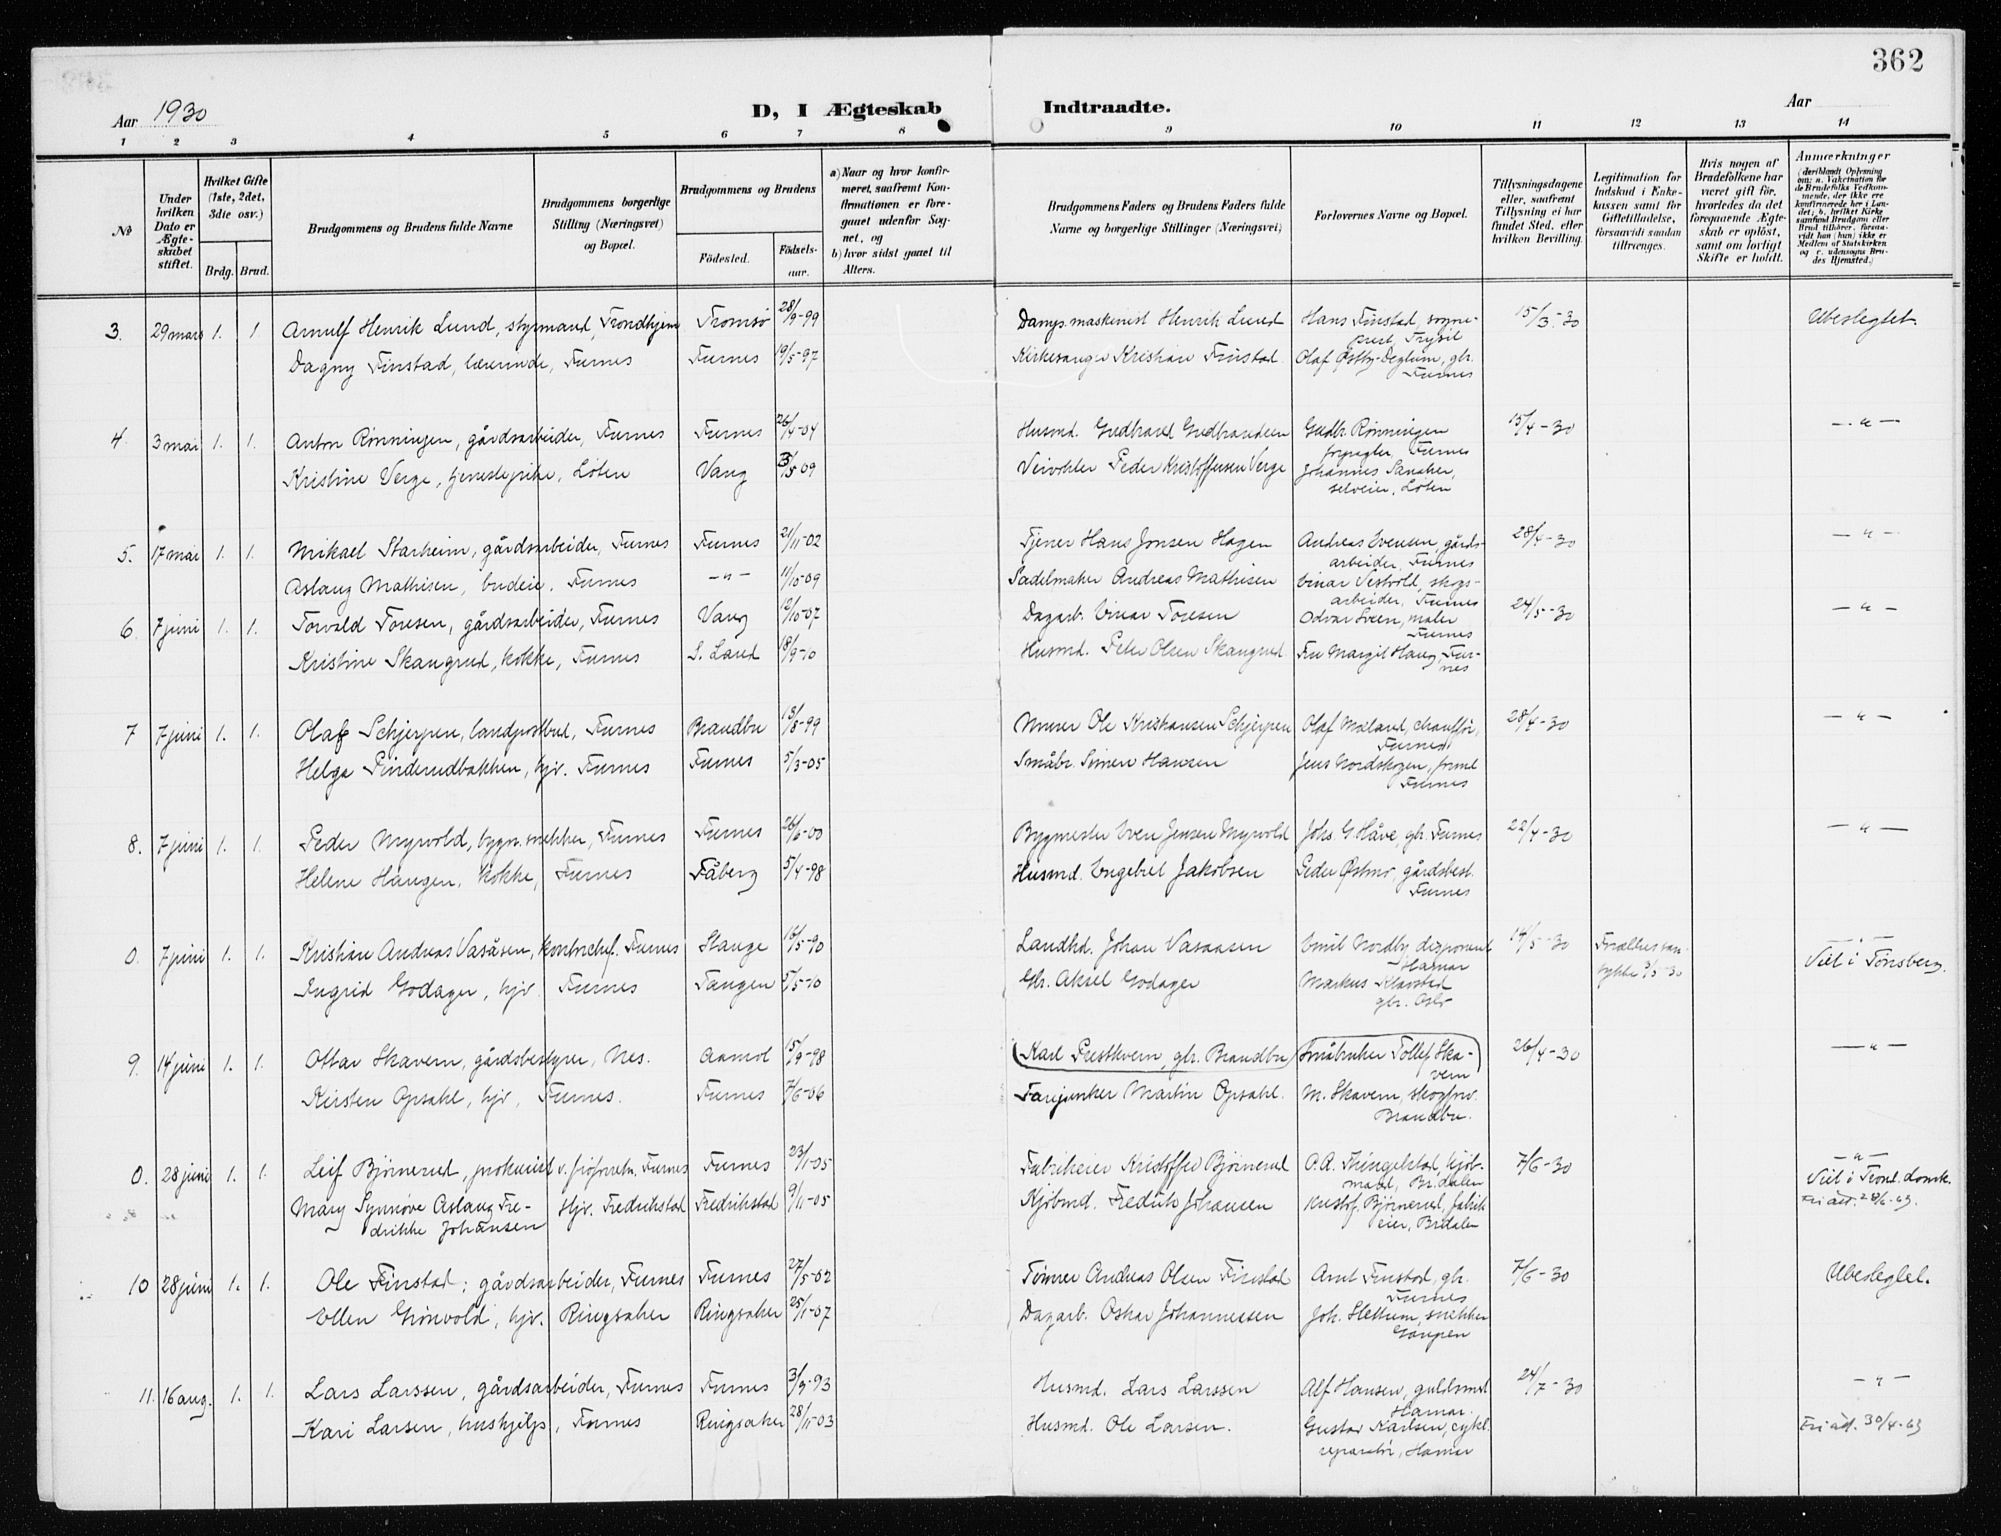 362
Aar 1930 D, I Ægteskab Indtraadte. Aar
1 2 3 4 5 6 7 8 9 10 11 12 13 14
No
Under hvilken Dato er Ægteskabet stiftet.
Hvilket Gifte (1ste, 2det, 3die osv.)
Brdg. Brud.
Brudgommens og Brudens fulde Navne
Brudgommens borgerlige Stilling (Næringsvei) og Bopæl.
Brudgommens og Brudens
Fødested. Fødselsaar.
a) Naar og hvor konfirmeret, saafremt Konfirmationen er foregaaet udenfor Sognet, og
b) hvor sidst gaaet til Alters.
Brudgommens Faders og Brudens Faders fulde Navne og borgerlige Stillinger (Næringsvei)
Forlovernes Navne og Bopæl.
Tillysningsdagene eller, saafremt Tillysning ei har fundet Sted, efter hvilken Bevilling.
Legitimation for Indskud i Enkekassen samt for Giftetilladelse, forsaavidt saadan tiltrænges.
Hvis nogen af Brudefolkene har været gift før, hvorledes da det foregaaende Ægteskab er opløst, samt om lovligt Skifte er holdt.
Anmærkninger
3. 29 mars 1. 1. Arnulf Henrik Lund, styrmand, Trondhjem Tromsø 28/9-99 Damps.maskinist Henrik Lund Hans Finstad, sogneprest, Trysil 15/3-30 Ubeslegtet.
Dagny Finstad, lærerinde, Furnes Furnes 19/5-97 Kirkesanger Kristian Finstad. Olaf Østby-Deglum, gbr. Furnes
4. 3 mai 1. 1. Anton Rønningen, gårdsarbeider, Furnes Furnes 26/4-04 Husmd. Gudbrand Gudbrandsen Gudbr. Rønningen Furnes 15/4-30 -"-
Kristine Verge, tjenestepike, Løten Vang 3/5 09 Peder Kristoffersen Verge Johannes selveier, Løten
5. 17 mai 1. 1. Mikael Starheim, gårdsarbeider, Furnes Furnes 21/11-02 Tjener Hans Jonsen Hagen Andreas Evensen, gårdsarbeider, Furnes 28/4-30 -"-
Aslaug Mathisen, budeie, Furnes -"- 11/10-09 Sadelmaker Andreas Mathisen Einar skogsarbeider, Furnes
6. 7 juni 1. 1. Torvald Toresen, gårdsarbeider, Furnes Vang 12/10-07 Dagarb. Einar Toresen Odvar Sveen, maler Furnes 24/5-30 -"-
Kristine Skangrud, kokke, Furnes S. Land 18/9-10 Husmd. Peter Olsen Skangrud Fru Margit Haug, Furnes
7 7 juni 1. 1. Olaf Schjerpen, landpostbud, Furnes Brandbu 13/8-99 Murer Ole Kristiansen Schjerpen Olaf Mæland, chauffør, Furnes 28/4-30 -"-
Helga Pinderudbakken, hjv. Furnes Furnes 5/3-05 Småbr. Simen Hansen Jens Nordskogen, Furnes
8. 7 juni 1. 1. Peder Myrvold, bygn.snekker, Furnes Furnes 26/6-00 Bygmester Even Jensen Myrvold Johs. G. Håve, gbr. Furnes 22/4-30 -"-
Helene Haugen, kokke, Furnes Fåberg 5/4-98 Husmd. Engebret Jakobsen Peder Østmo, gårdsbest. Furnes
0. 7 juni 1. 1. Kristian Andreas Vasåsen, kontorchef. Furnes Stange 16/5-90 Landhd. Johan Vasaasen Emil Nordby disponent Hamar 14/5-30 Forældres samtykke 3/5-30 -"- Viet i Tønsberg.
Ingrid Godager, hjv. Furnes Tangen 5/5-10 Gbr. Aksel Godager Markus Klavstad gbr. Oslo
9. 14 juni 1. 1. Ottar Skavern, gårdsbestyrer, Nes. Aamot 15/9-98 Karl Prestkvern, gbr. Brandbu Småbruker Tollef Skavern 26/4-30 -"-
Kirsten Opsahl, hjv, Furnes. Furnes 7/6-06 Fanejunker Martin Opsahl. M. Skavern, skogforv. Brandbu.
0. 28 juni 1. 1. Leif Bjørnerud, prokurist v. frøforretn. Furnes Furnes 23/1-05 Fabrikeier Kristoffer Bjørnerud O.A. Thingelstad, kjøbmand, Br.dalen 7/6-30 -"- Viet i Trond. domk.
Mary Synnøve Aslaug Fredrikke Johansen Hjv. Fredrikstad Fredrikstad 9/11-05 Kjøbmd. Fredrik Johansen Kristof. Bjørnerud, fabrikeier, Br.dalen Fri att. 28/6-63.
10 28 juni 1. 1. Ole Finstad, gårdsarbeider, Furnes Furnes 27/5-02 Tømrer Andreas Olsen Finstad Arnt Finstad, gbr. Furnes 7/6-30 Ubeslegtet.
Ellen Grønvold, hjv. Ringsaker Ringsaker 25/1-07 Dagarb. Oskar Johannessen Joh. Slettum, snekker Gaupen
11. 16 aug. 1. 1. Lars Larssen, gårdsarbeider, Furnes Furnes 3/9-93 Husmd. Lars Larssen Alf Hansen, guldsmed Hamar. 24/7-30 -"-
Kari Larsen, hushjelp, Furnes Ringsaker 28/11-03 Husmd. Ole Larsen. Gustav Karlsen, cykl. reparatør, Hamar Fri att. 30/4-63